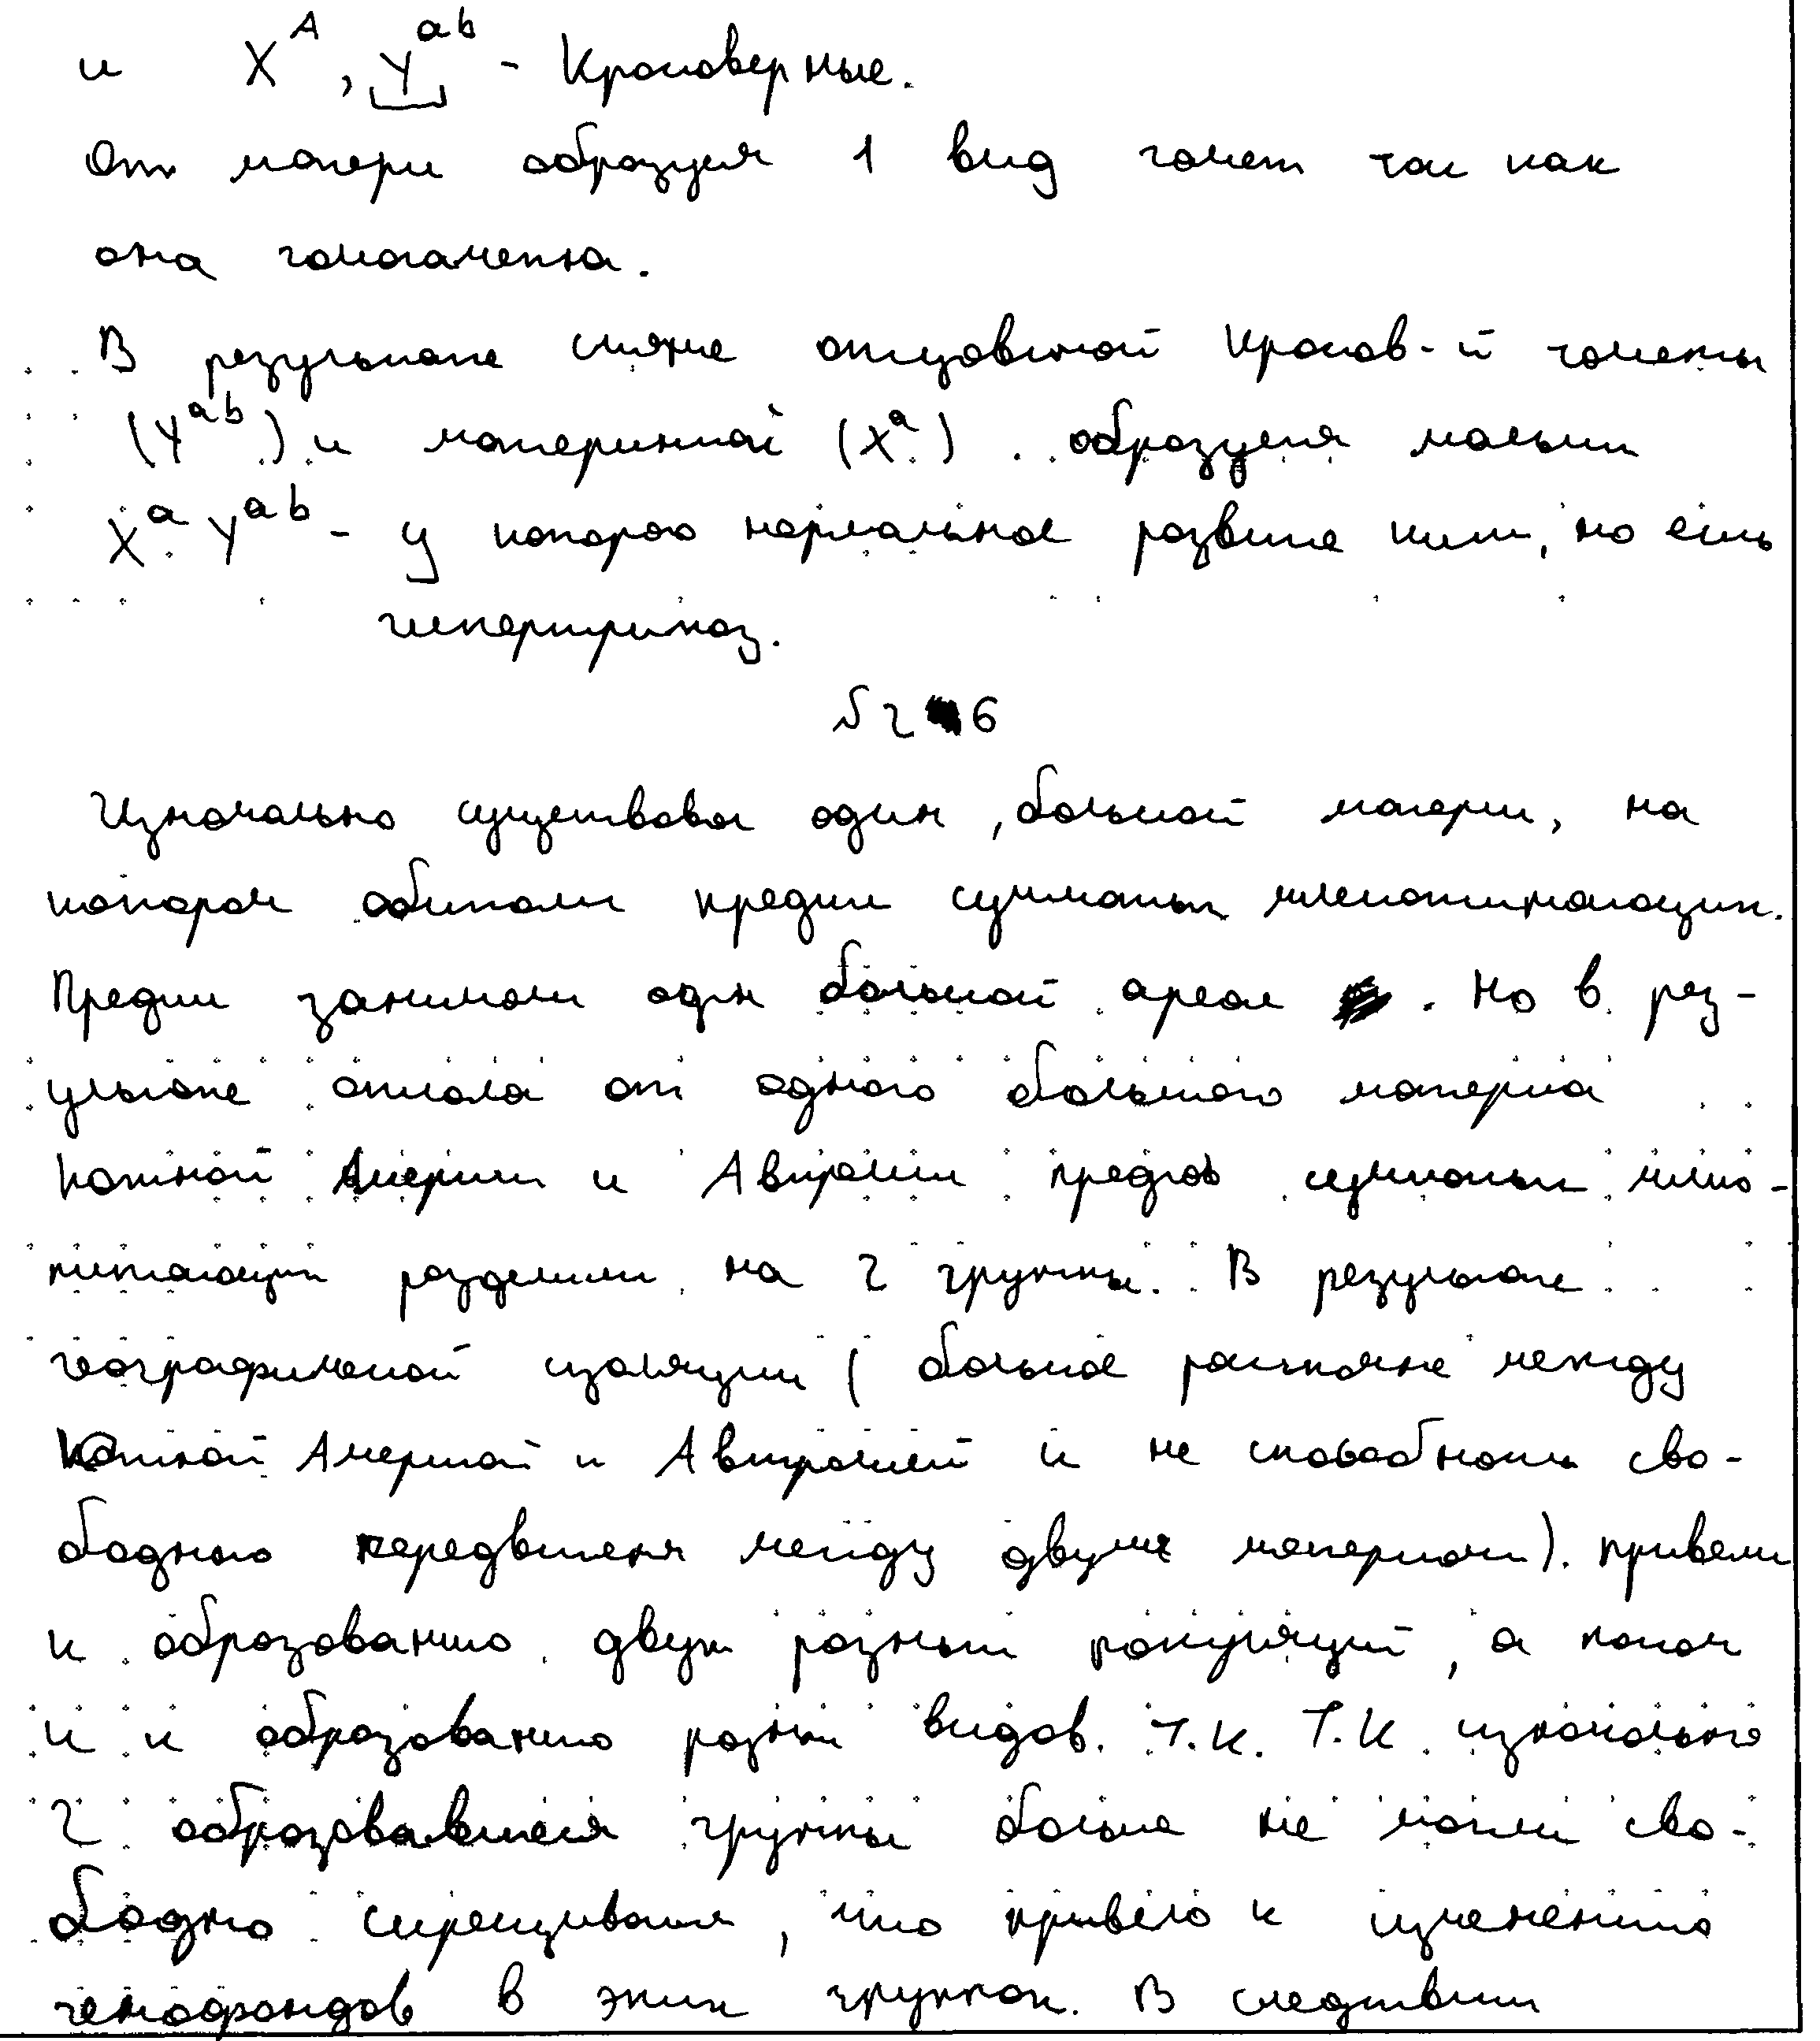 и X^A, Y^ab - Кроссоверные.
От матери образуется 1 вид гамет так как
она гомогаметна.
В результате слияние отцовской кроссов-й гаметы
(Y^ab) и материнской (X^a) образуется мальчик
X^a Y^ab - у которого нормальное развитие кисти, но есть
гипертрихоз.
№ 26
Изначально существовал один, большой материк, на
котором обитали предки сумчатых млекопитающих.
Предки занимали один большой ареал. Но в рез-
ультате откола от одного большого материка
Южной Америки и Австралии предков сумчатых млеко-
питающих разделили на 2 группы. В результате
географической изоляции (большое расстояние между
Южной Америкой и Австралией и не способность сво-
бодного передвижения между двумя материками) привели
к образованию двух разных популяций, а потом
и к образованию разных видов. Т.к. Т.к изначально
2 образовавшиеся группы больше не могли сво-
бодно скрещиваться, что привело к изменению
генофондов в этих группах. В следствии